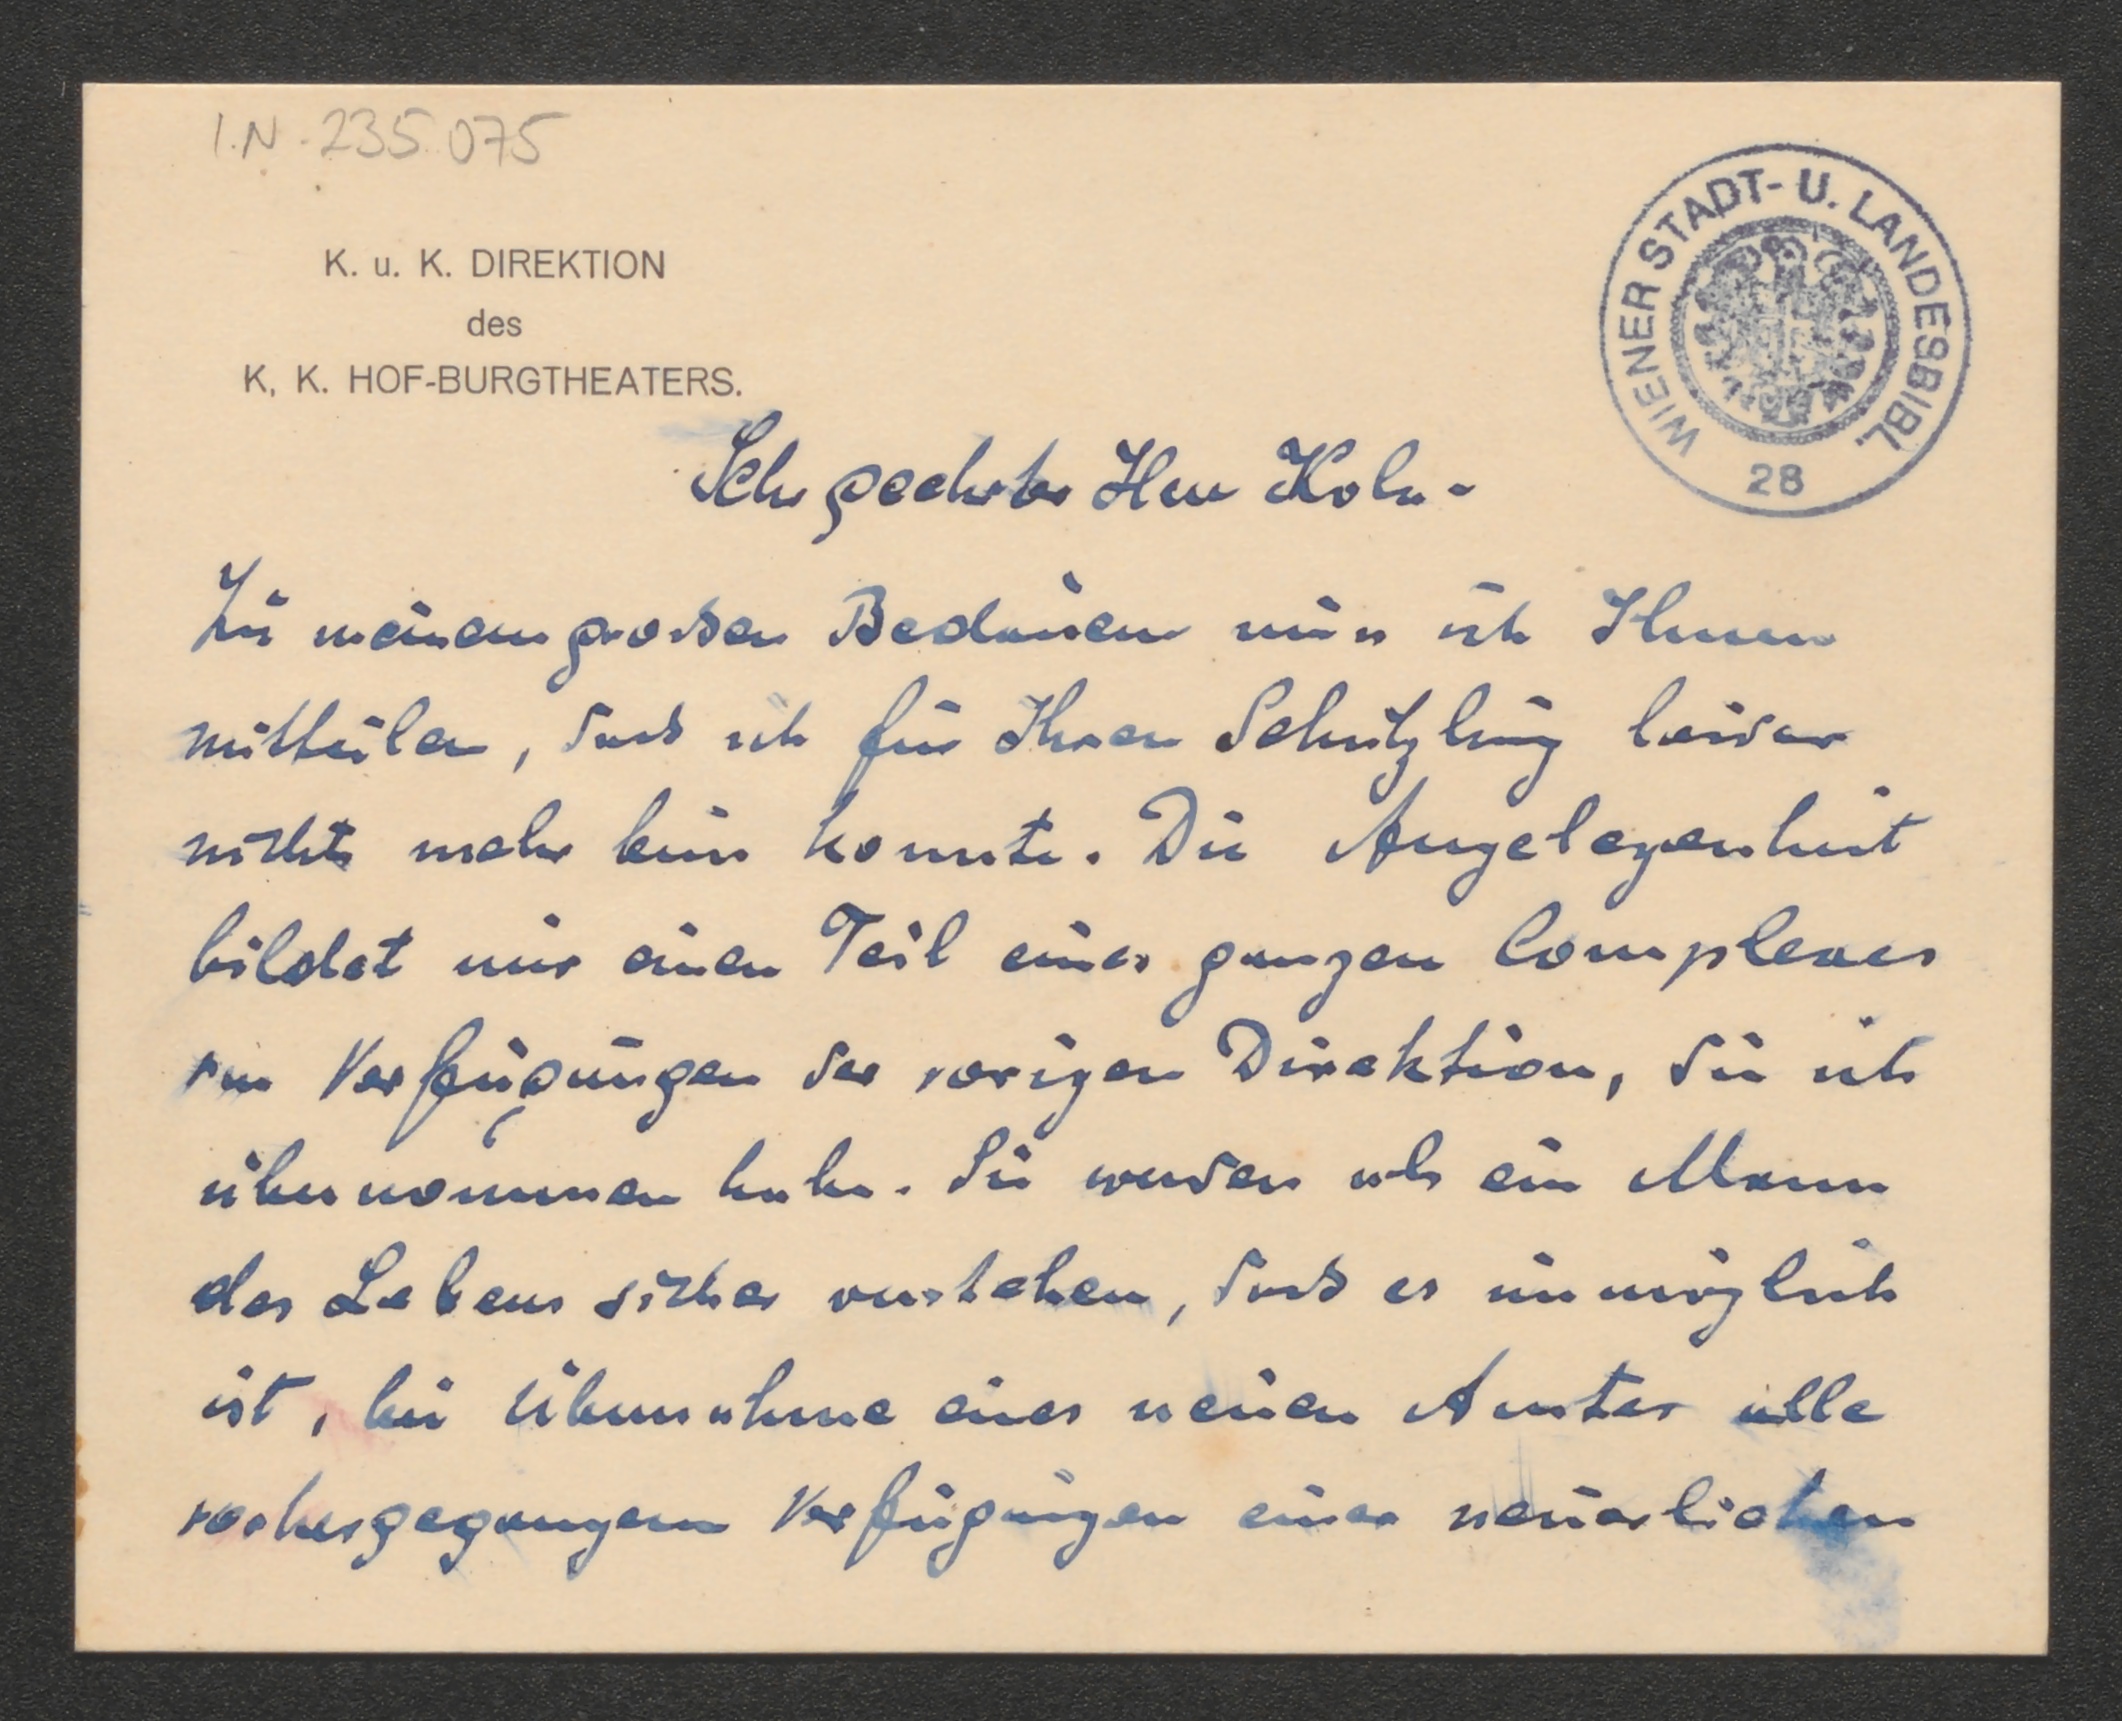 I.N. 235.075
WIENER STADT- U. LANDESBIBL.
28
K. u. K. DIREKTION
des
K. K. HOF-BURGTHEATERS.
Sehr geehrter Herr Kohn-
Zu meinem grossen Bedauern muss ich Ihnen
mitteilen, dass ich für Ihren Schützling leider
nichts mehr tun konnte. Die Angelegenheit
bildet nur einen Teil eines ganzen Complexes
von Verfügungen der vorigen Direktion, die ich
übernommen habe. Sie werden als ein Mann
des Lebens sicher verstehen, dass es unmöglich
ist, bei Übernahme eines neuen Amtes alle
vorhergegangenen Verfügungen einer neuerlichen